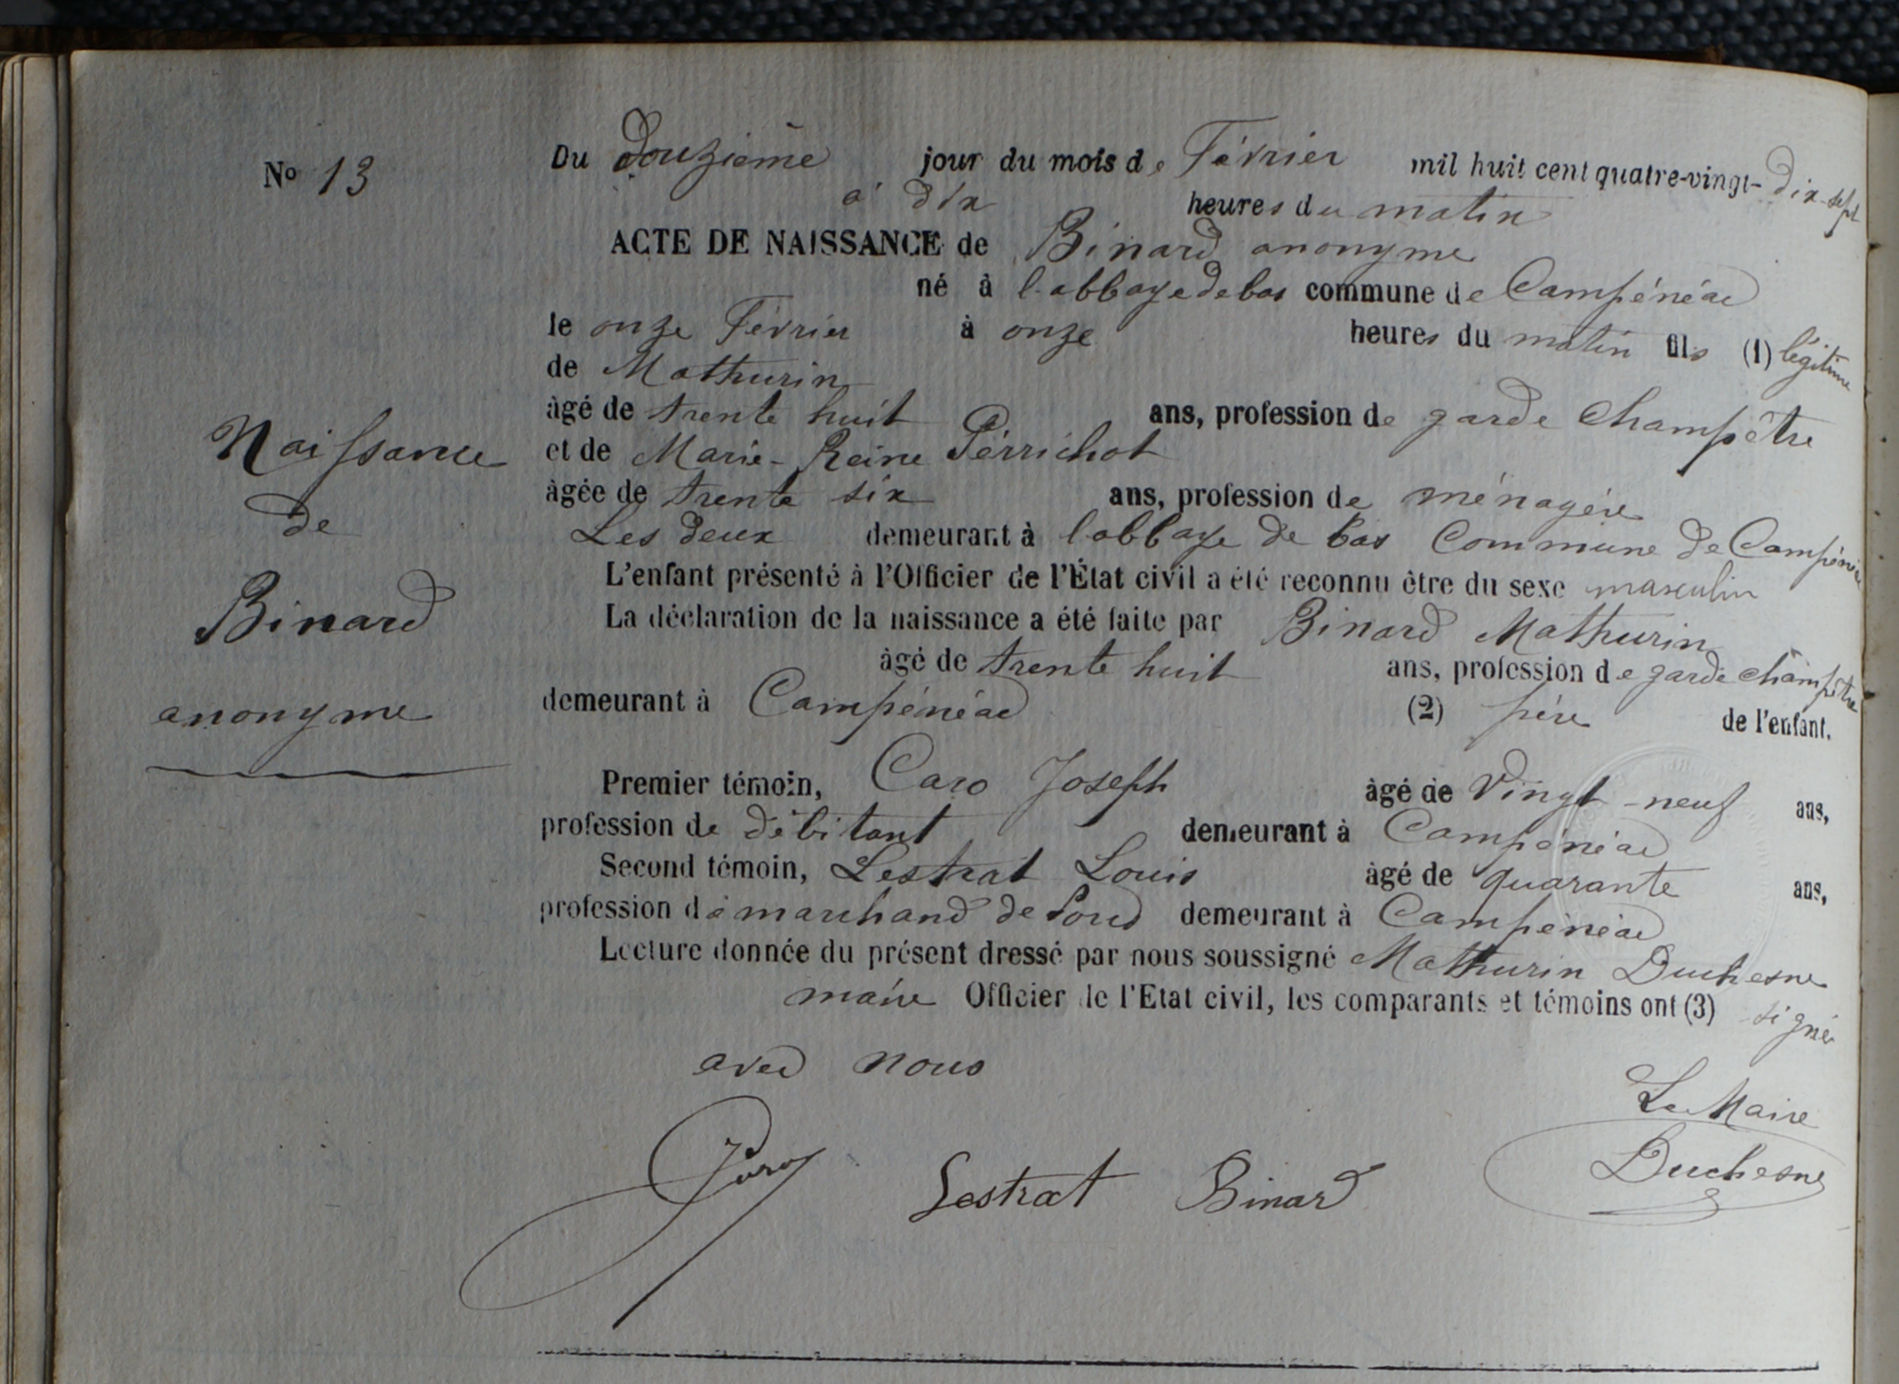 No 13
Du douzième jour du mois de Février mil huit cent quatre-vingt-dix-sept
à dix heures du matin
ACTE DE NAISSANCE de Binard anonyme
né à l'abbaye de bas commune de Campénéac
le onze Février à onze heures du matin fils (1) légitime
de Mathurin
âgé de trente huit ans, profession de garde champêtre
et de Marie-Reine Pérrichot
âgée de trente six ans, profession de ménagère
Les deux demeurant à l'abbaye de bas Commune de Campénéac
L'enfant présenté à l'Officier de l'État civil a été reconnu être du sexe masculin
La déclaration de la naissance a été faite par Binard Mathurin
âgé de trente huit ans, profession de garde champêtre
demeurant à Campénéac (2) père de l'enfant.
Premier témoin, Caro Joseph âgé de Vingt-neuf ans,
profession de débitant demeurant à Campénéac
Second témoin, Lestrat Louis âgé de quarante ans,
profession de marchand de demeurant à Campénéac
Lecture donnée du présent dressé par nous soussigné Mathurin Duchesne
maire Officier de l'Etat civil, les comparants et témoins ont (3) signé
avec nous
Naissance
de
Binard
anonyme
Le Maire
Duchesne
Caro Lestrat Binard